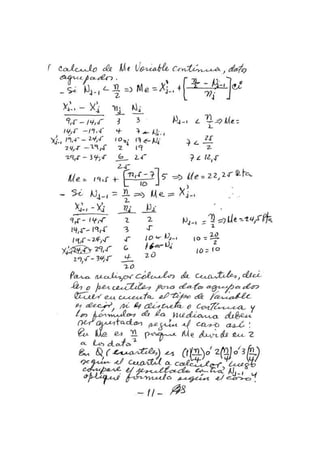 Calculo de Me Variable Continua, datos
agrupados.
- Si Nj-1 < n/2 => Me = X'j-1 + [n/2 - Nj-1 / nj] ci
X'j-1 - X'j nj Nj
9,5 - 14,5 3 3 Nj-1 < n/2 => Me:
14,5 - 19,5 4 7 ← Nj-1
X'j-1 19,5 - 24,5 10 nj 17 ← Nj 7 < 25/2
24,5 - 29,5 2 19
29,5 - 34,5 6 25 7 < 12,5
25
Me = 19,5 + [12,5 - 7 / 10] 5 => Me = 22,25
- Si Nj-1 = n/2 => Me = X'j-1
X'j-1 - X'j nj Nj
9,5 - 14,5 2 2 Nj-1 = n/2 => Me = 24,5
14,5 - 19,5 3 5
19,5 - 24,5 5 10 ← Nj-1 10 = 20/2
X'j-1 24,5 - 29,5 6 16 ← Nj 10 = 10
29,5 - 34,5 4 20
20
Para realizar Cálculos de cuartiles, deci
les o percentiles para datos agrupados
tener en cuenta el tipo de Variable
es decir, si es discreta o continua, y
las fórmulas de la mediana deben
ser ajustadas según el caso así:
En Me es n/2 porque Me divide en 2
a los datos
En Q (cuartiles) es 1(n/4) o 2(n/4) o 3(n/4)
según el cuartil a calcular, luego
compare el resultado contra Nj-1 y
aplique fórmula según el caso.
- 11 -